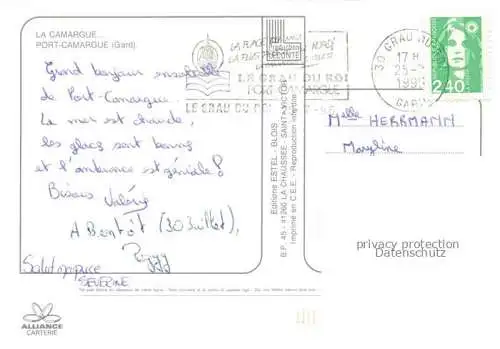 LA CAMARGUE...
PORT-CAMARGUE (Gard).
Grand bonjour ensoleillé
de Port-Camargue.
La mer est chaude,
les glaces sont bonnes
et l'ambiance est géniale!
Bisous Valérie
A Bientôt (30 Juillet),
Salut
SEVERINE
ALLIANCE
CARTERIE
LECONTE
LA PLAGE
LE GRAU DU ROI
PORT CAMARGUE
LE GRAU DU ROI
30 GRAU DU ROI
17 H
GARD
2,40
Editions ESTEL - BLOIS
B.P. 45 - 41260 LA CHAUSSEE - SAINT-VICTOR
Imprimé en C.E.E. - Reproduction interdite
Melle HERRMANN
Maryline
privacy protection
Datenschutz